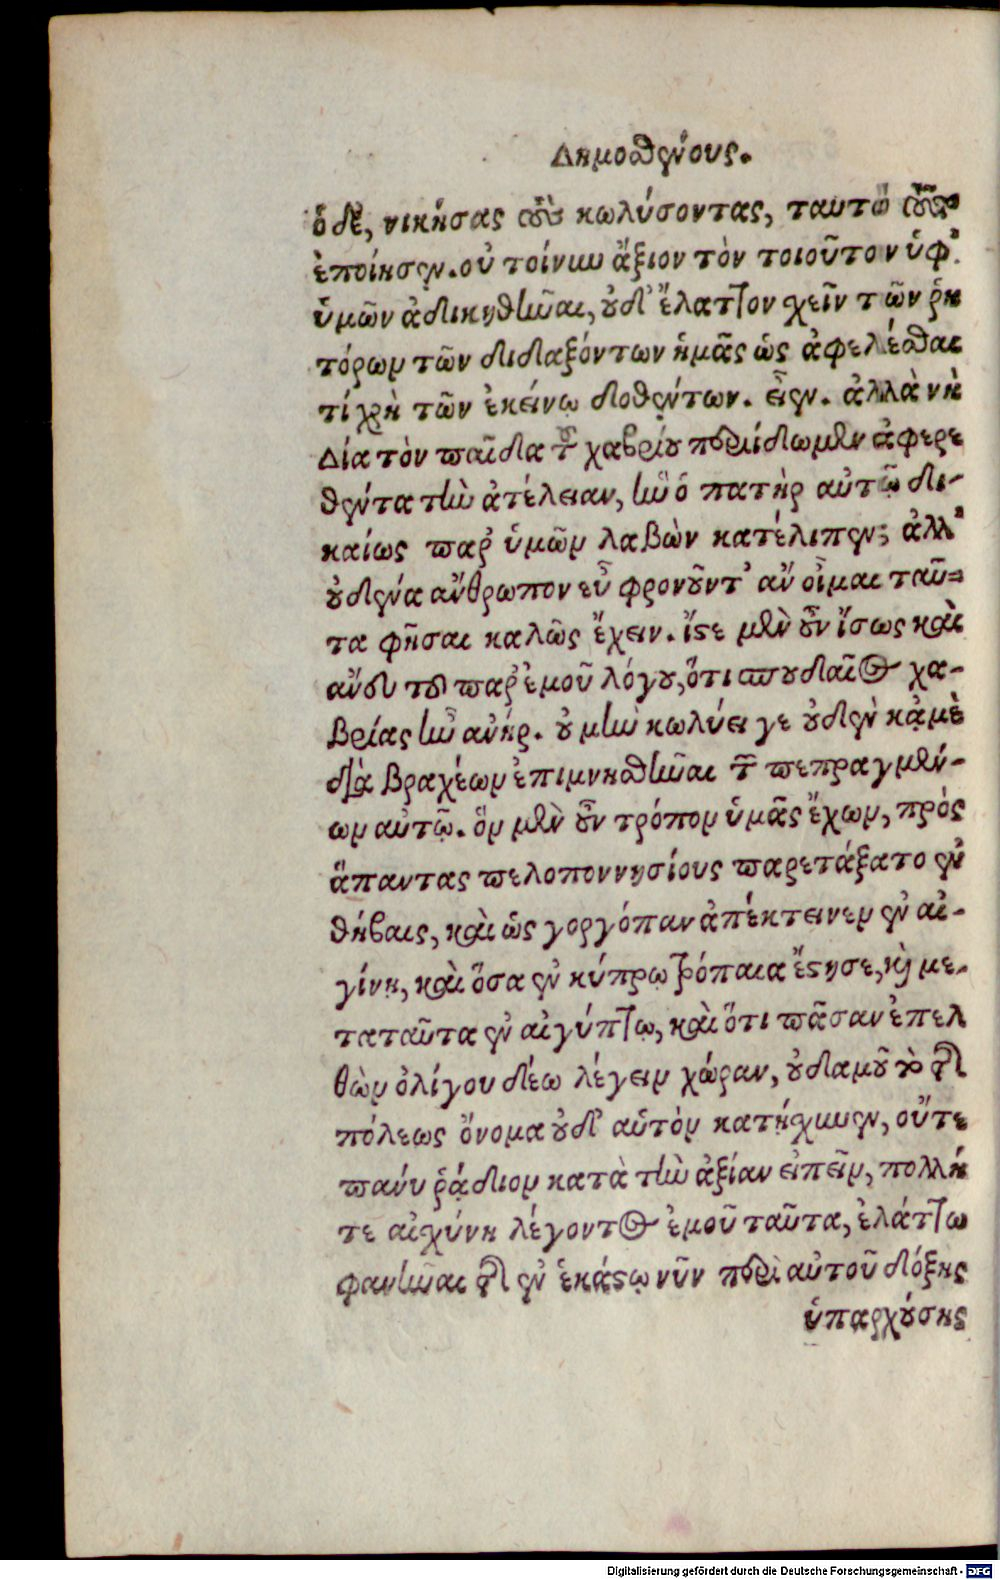 Δημοσθένους.
ὁ δὲ, νικήσας τοὺς κωλύσοντας, ταυτὶ τοῦτ᾽
ἐποίησεν. οὐ τοίνυν ἄξιον τὸν τοιοῦτον ὑφ᾽
ὑμῶν ἀδικηθῆναι, οὐδ᾽ ἔλαττον σχεῖν τῶν ῥη
τόρων τῶν διδαξόντων ἡμᾶς ὡς ἀφελέσθαι
τί χρὴ τῶν ἐκείνῳ δοθέντων. εἶεν. ἀλλὰ νὴ
Δία τὸν παῖδα τοῦ χαβρίου περιίδωμεν ἀφερε
θέντα τὴν ἀτέλειαν, ἣν ὁ πατὴρ αὐτῷ δι-
καίως παρ᾽ ὑμῶν λαβὼν κατέλιπεν; ἀλλ᾽
οὐδένα ἄνθρωπον εὖ φρονοῦντ᾽ ἂν οἶμαι ταῦ-
τα φῆσαι καλῶς ἔχειν. ἴστε μὲν οὖν ἴσως καὶ
ἄνευ τοῦ παρ᾽ ἐμοῦ λόγου, ὅτι σπουδαῖος χα-
βρίας ἦν ἀνήρ. οὐ μὴν κωλύει γε οὐδὲν κᾀμὲ
διὰ βραχέων ἐπιμνησθῆναι τῶν πεπραγμέν-
ων αὐτῷ. ὃν μὲν οὖν τρόπον ὑμᾶς ἔχων, πρὸς
ἅπαντας πελοποννησίους παρετάξατο ἐν
θήβαις, καὶ ὡς γοργόπαν ἀπέκτεινεν ἐν αἰ-
γίνῃ, καὶ ὅσα ἐν κύπρῳ τρόπαια ἔστησε, καὶ με-
ταταῦτα ἐν αἰγύπτῳ, καὶ ὅτι πᾶσαν ἐπελ
θὼν ὀλίγου δέω λέγειν χώραν, οὐδαμοῦ τὸ τῆς
πόλεως ὄνομα οὐδ᾽ αὑτὸν κατῄσχυνεν, οὔτε
πάνυ ῥᾴδιον κατὰ τὴν ἀξίαν εἰπεῖν, πολλή
τε αἰσχύνη λέγοντος ἐμοῦ ταῦτα, ἐλάττω
φανῆναι τῆς ἐν ἑκάστῳ νῦν περὶ αὐτοῦ δόξης
ὑπαρχούσης
Digitalisierung gefördert durch die Deutsche Forschungsgemeinschaft - DFG